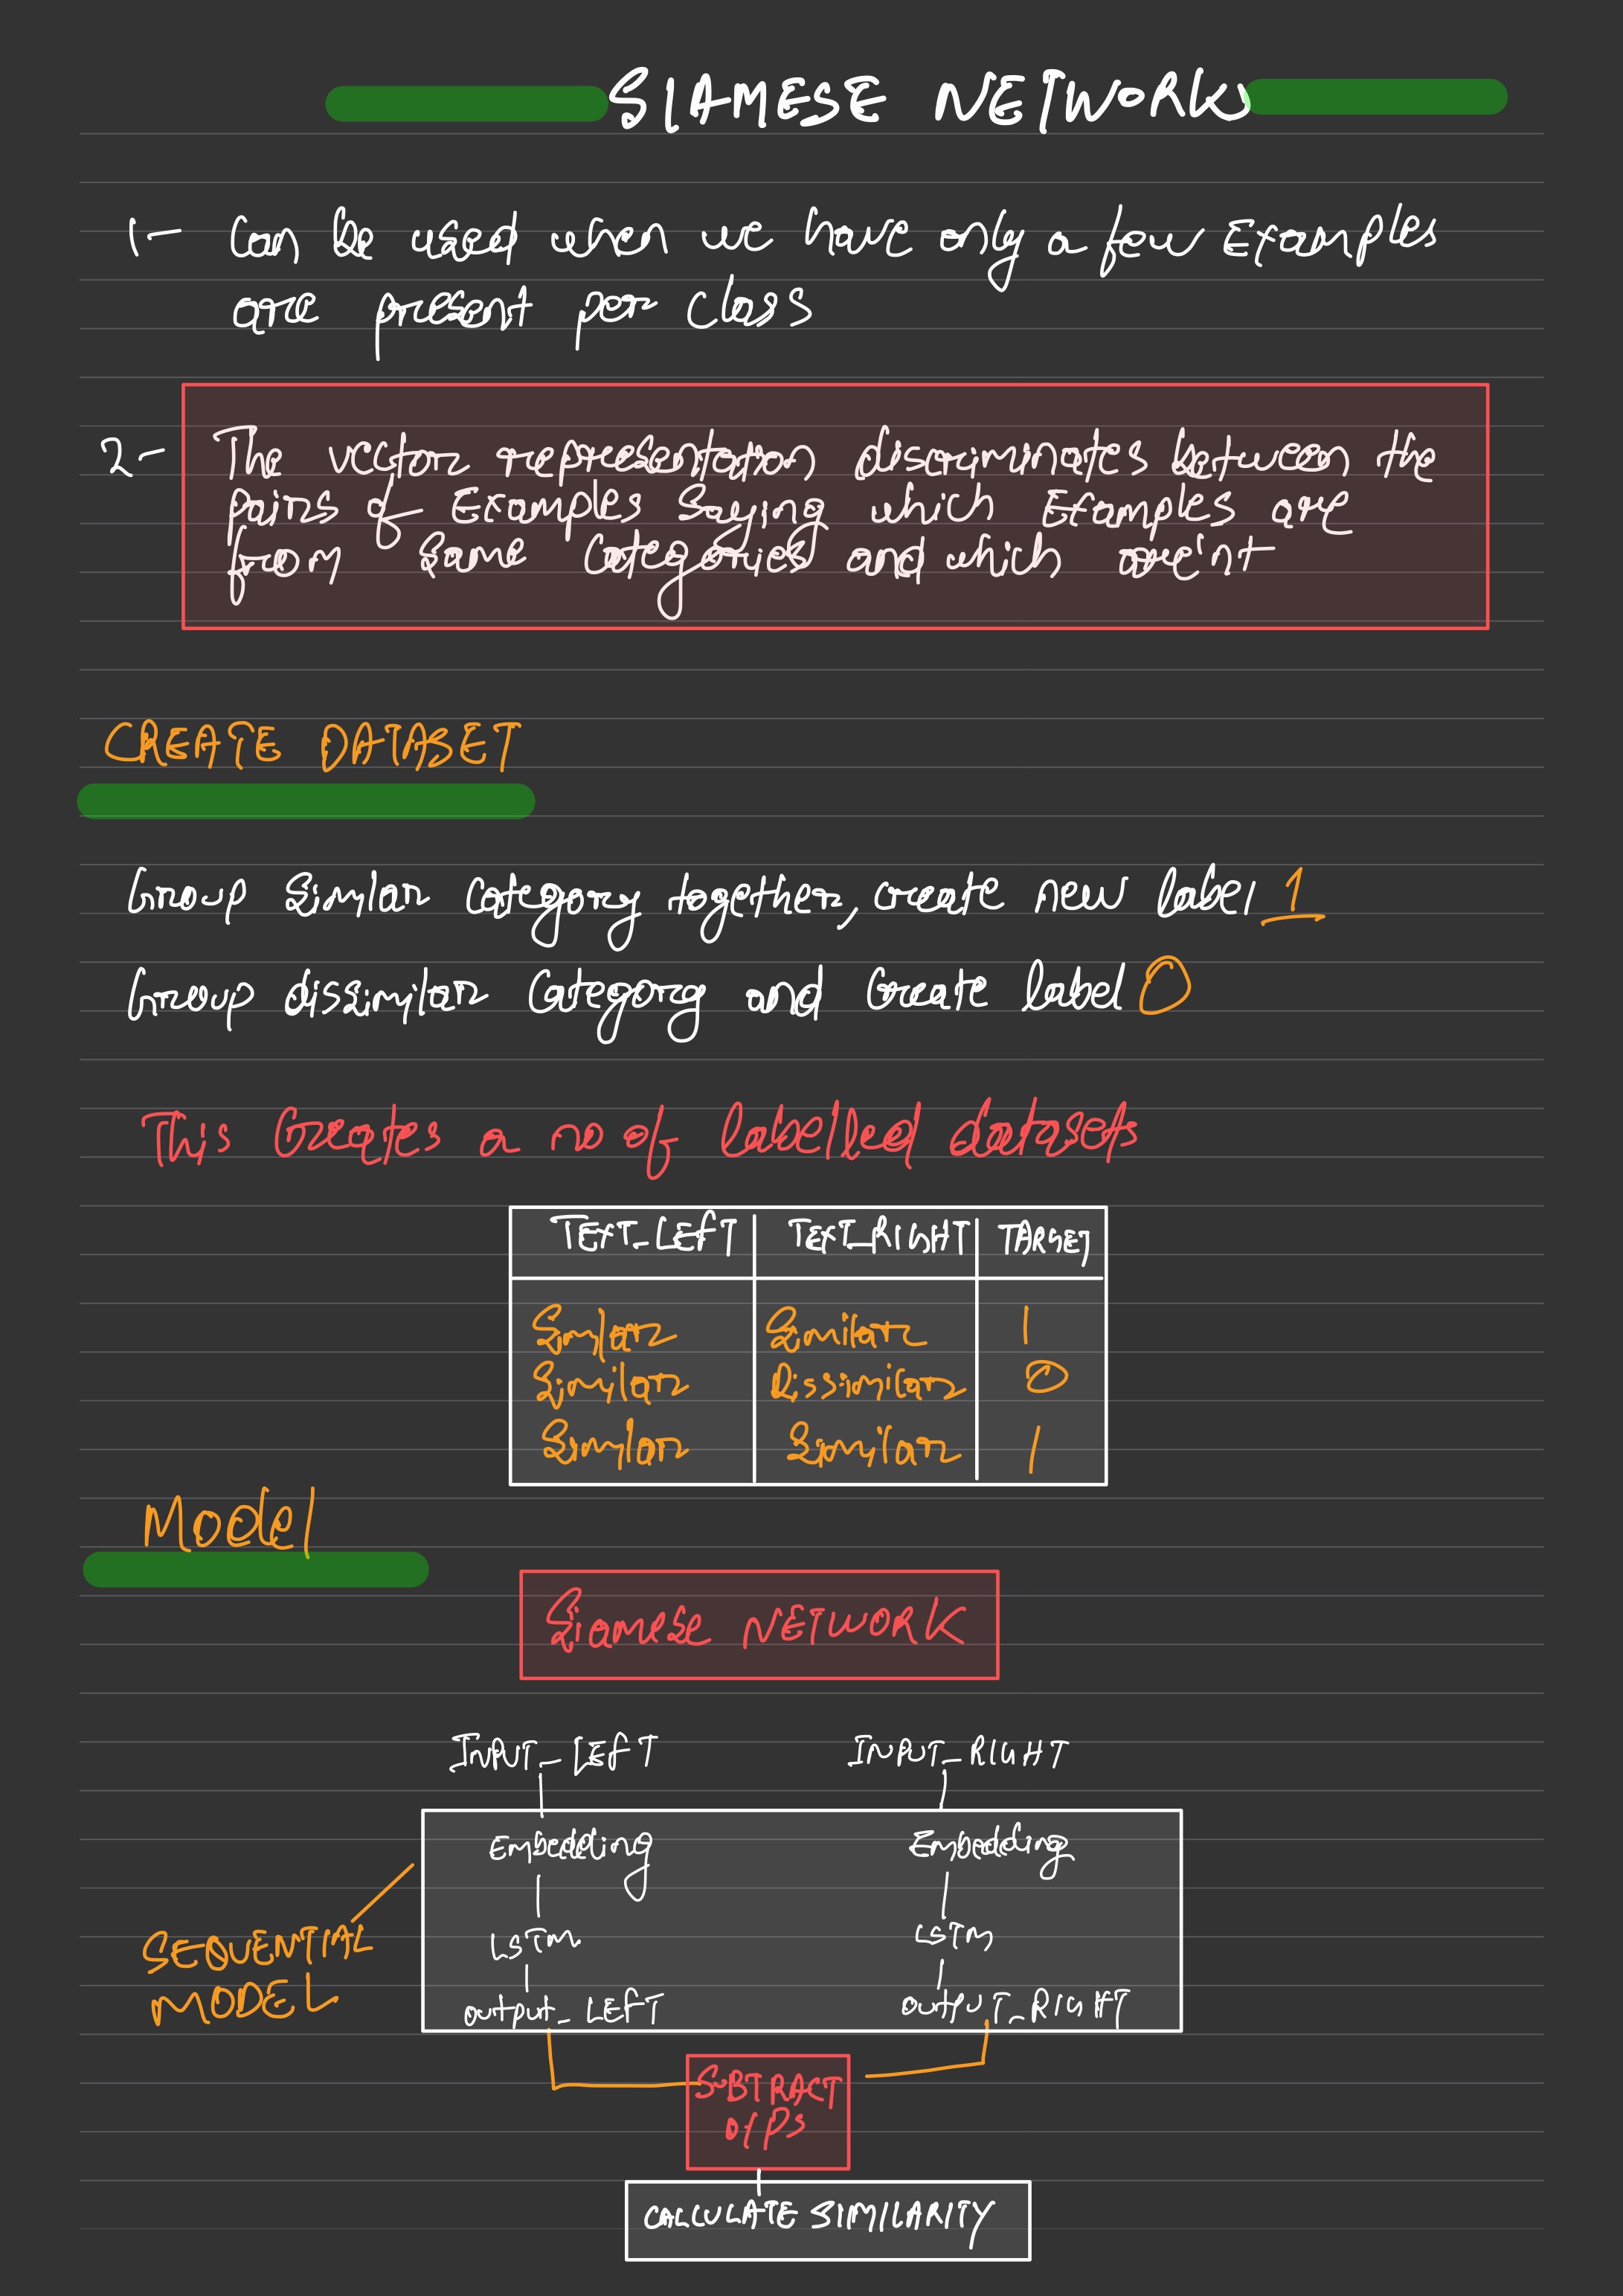 SIAMESE NETWORK
1- Can be used when we have only a few Examples
are present per class
2- The vector representation discriminates between the
pairs of Examples saying which Examples are
from same categories and which are'nt
CREATE DATASET
Group similar category together, create new label 1
Group dissimilar category and create label 0
This creates a no of labelled datasets
TEXT_LEFT TEXT_RIGHT TARGET
Similar Similar 1
Similar Dissimilar 0
Similar Similar 1
Model
Siamese NETWORK
INPUT_LEFT INPUT_RIGHT
Embedding Embedding
LSTM LSTM
OUTPUT_LEFT OUTPUT_RIGHT
SEQUENTIAL
MODEL
SUBTRACT
O/PS
CALCULATE SIMILARITY